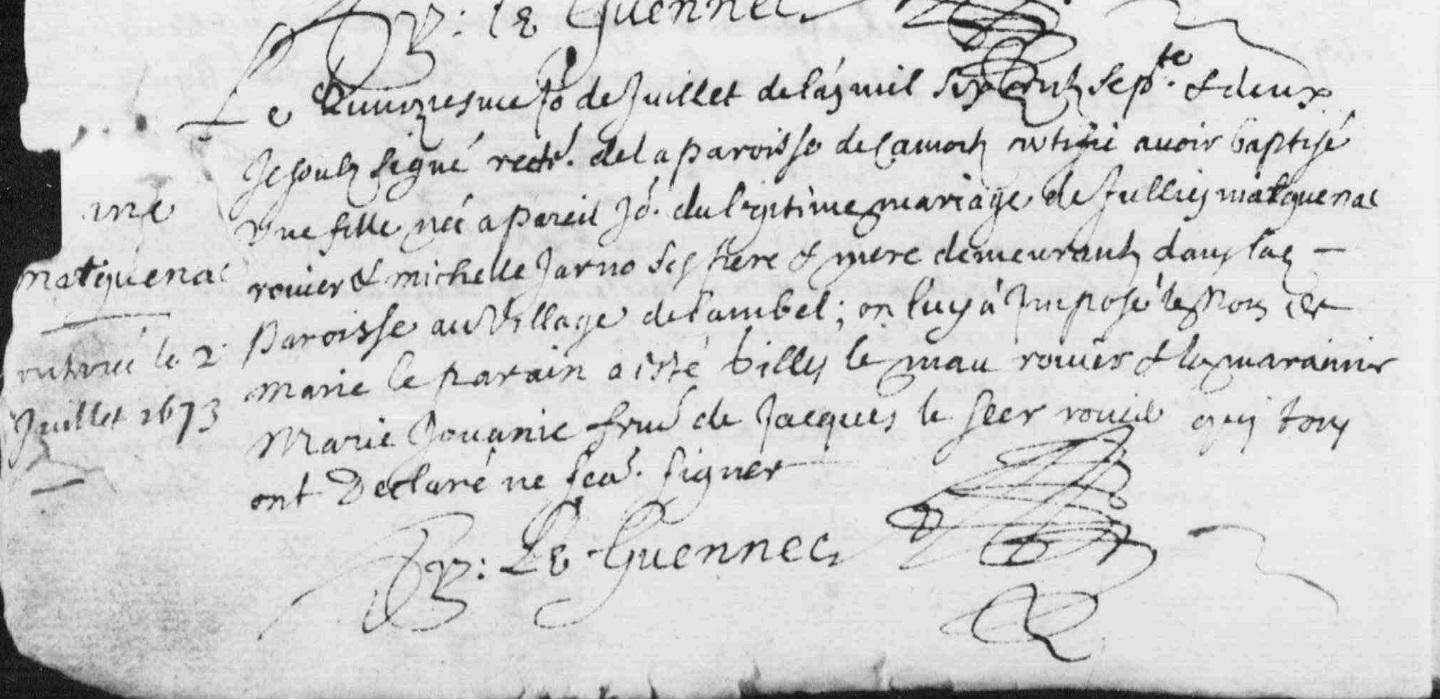 Le Guennec
Le Quinziesme Jo de Juillet de l'an mil six cents septte & deux
Je soubs signé rectr. de la paroisse de Camorh certifie avoir baptisé
une fille née a pareil Jo. du legitime mariage de Jullien matguenac
rouier & michelle Jarno ses pere & mere demeurants dans lad
paroisse au Village de lambel; on luy à Imposé le Nom de
marie le parain a esté Gilles le mau rouier & la maraine
Marie Jouanic feme de Jacques le seer rouier qui tous
ont Declaré ne scar. signer
Le Guennec
matguenac
le 2
Juillet 1673